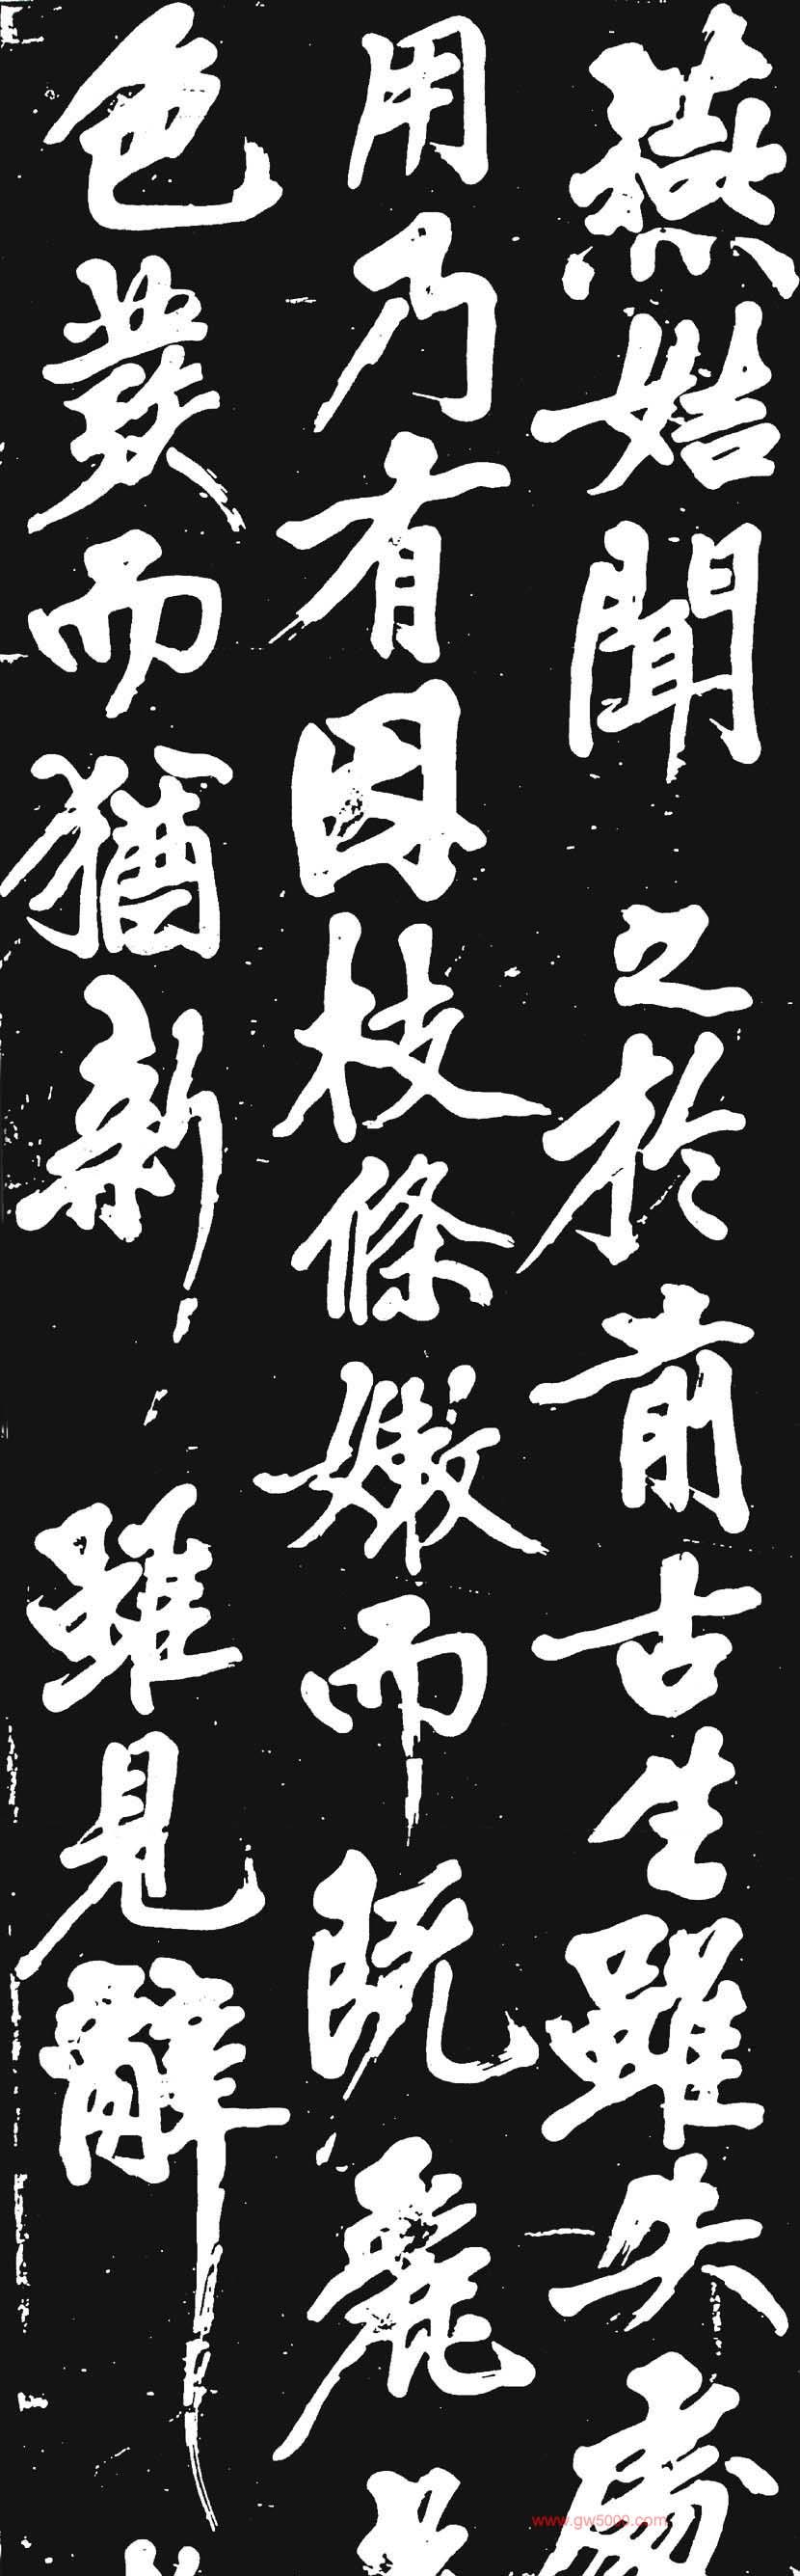 燕始聞之於前古生雖失處
用乃有因枝條嫩而既麗
色發而猶新雖見辭
www.gw5000.com